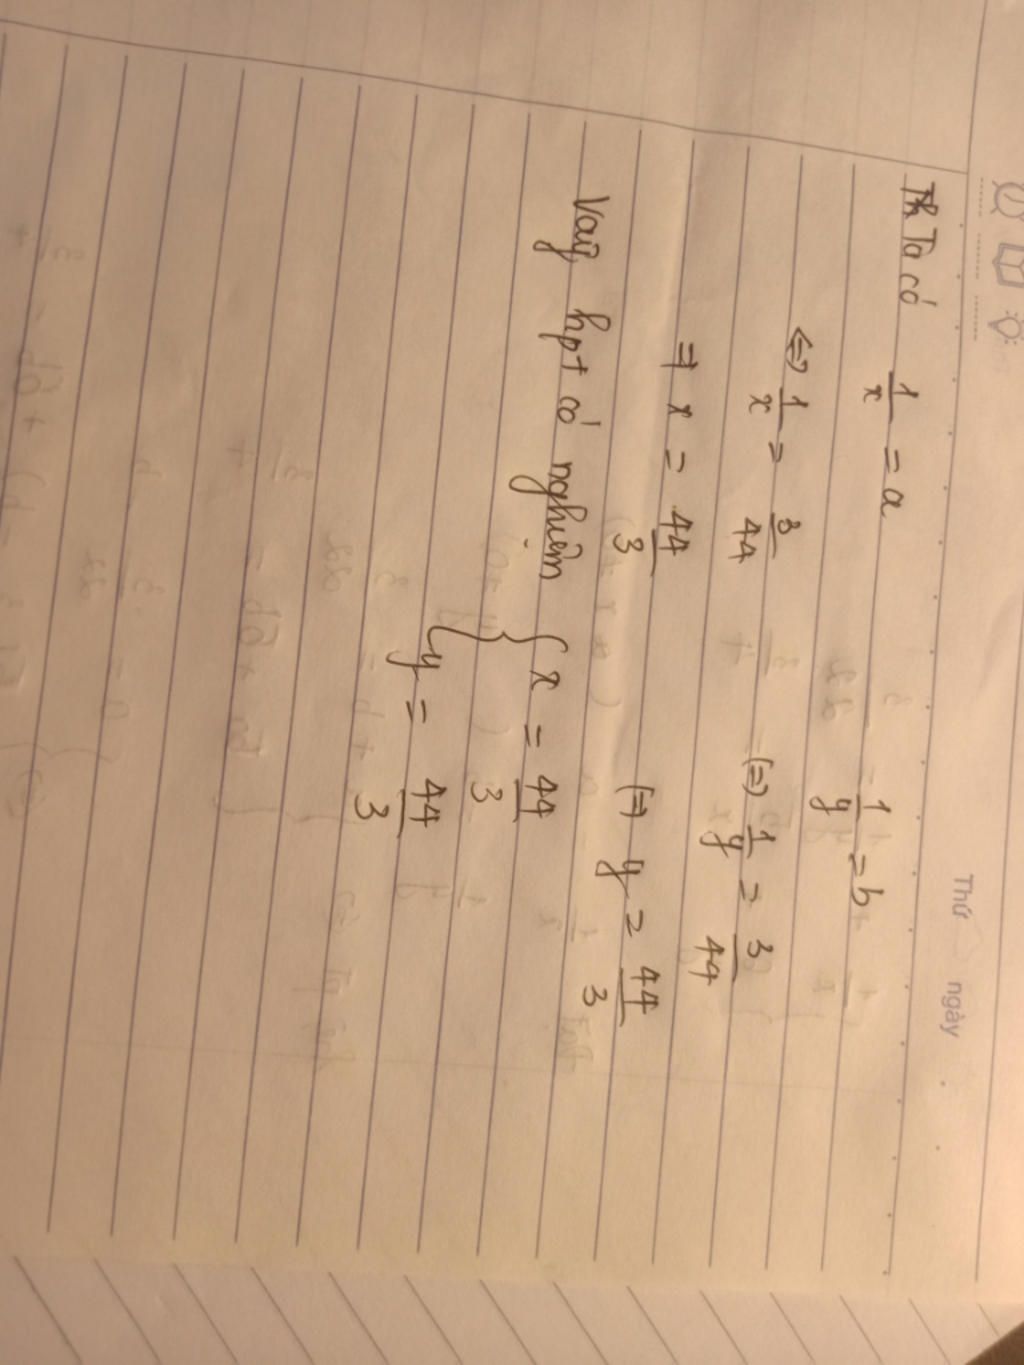 Thứ ngày
Ta có 1/x = a 1/y = b
⇔ 1/x = 3/44 (=) 1/y = 3/44
⇒ x = 44/3 (=) y = 44/3
Vậy hpt có nghiệm { x = 44/3
y = 44/3